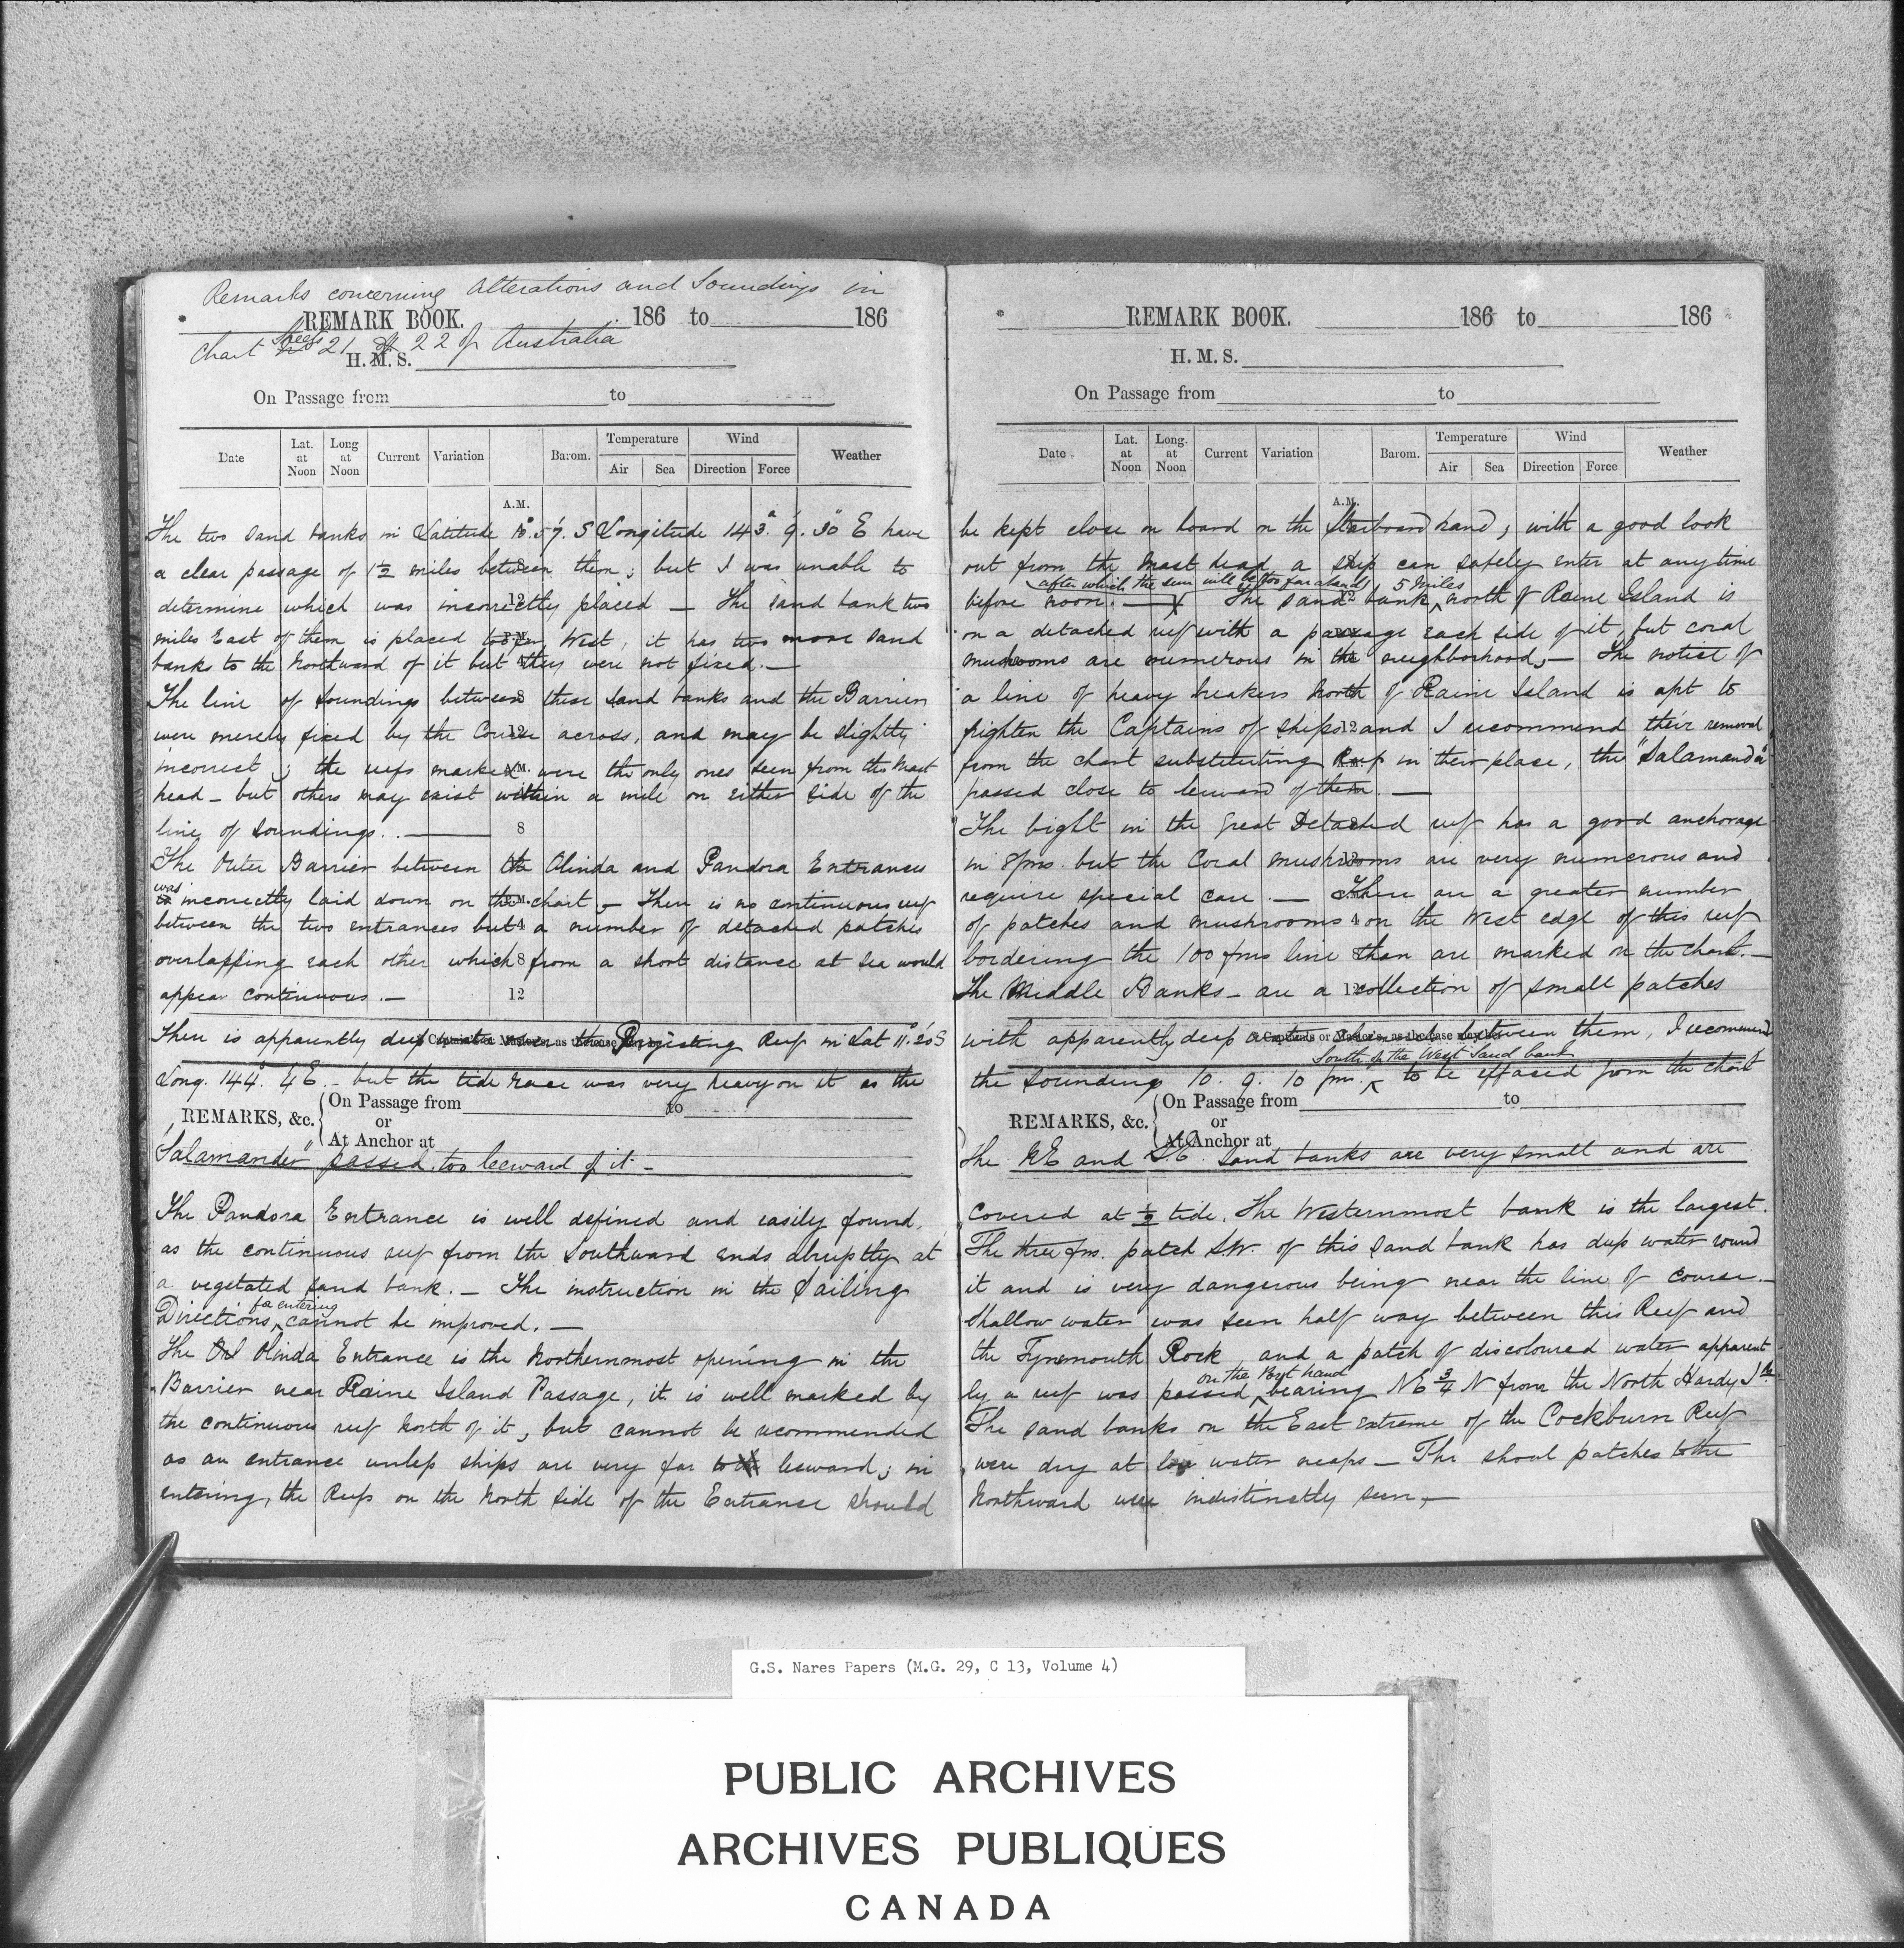 Remarks concerning Alterations and Soundings in
REMARK BOOK. 186 to 186
Chart Sheets 21 & 22 of Australia
H. M. S.
On Passage from to
Date Lat. at Noon Long at Noon Current Variation Barom. Temperature Air Sea Wind Direction Force Weather
A.M.
The two sand banks in Latitude 10°.57'. S Longitude 143°. 9'. 30" E have
a clear passage of 1½ miles between them; but I was unable to
determine which was incorrectly placed — The sand bank two
miles East of them is placed too far West, it has two more sand
banks to the Northward of it but they were not fixed. —
The line of soundings between these sand banks and the Barrier
were merely fixed by the Course across, and may be slightly
incorrect; the reefs marked were the only ones seen from the Mast
head - but others may exist within a mile on either side of the
line of soundings. . —
The Outer Barrier between the Olinda and Pandora Entrances
was incorrectly laid down on the chart, — There is no continuous reef
between the two entrances but a number of detached patches
overlapping each other which from a short distance at sea would
appear continuous. —
There is apparently deep water over the Projecting Reef in Lat 11°. 20' S
Long. 144°. 4 E. - but the tide race was very heavy on it as the
REMARKS, &c. On Passage from to
or
At Anchor at
"Salamander" passed too leeward of it. -
The Pandora Entrance is well defined and easily found,
as the continuous reef from the Southward ends abruptly at
a vegetated sand bank. — The instruction in the Sailing
Directions for entering cannot be improved. —
The Olinda Entrance is the Northernmost opening in the
Barrier near Raine Island Passage, it is well marked by
the continuous reef North of it, but cannot be recommended
as an entrance unless ships are very far to leeward; in
entering, the Reefs on the North side of the Entrance should
REMARK BOOK. 186 to 186
H. M. S.
On Passage from to
Date Lat. at Noon Long. at Noon Current Variation Barom. Temperature Air Sea Wind Direction Force Weather
A.M.
be kept close on board on the Starboard hand; with a good look
out from the mast head a ship can safely enter at any time
before noon. after which the sun will be too far ahead — The sand bank 5 miles north of Raine Island is
on a detached reef with a passage each side of it, but coral
mushrooms are numerous in the neighborhood, — The notice of
a line of heavy breakers North of Raine Island is apt to
frighten the Captains of ships and I recommend their removal
from the chart substituting Reef in their place, the "Salamander"
passed close to leeward of them. —
The bight in the Great Detached reef has a good anchorage
in 8 fms. but the Coral mushrooms are very numerous and
require special care. — There are a greater number
of patches and mushrooms on the West edge of this reef
bordering the 100 fms line than are marked on the chart. —
The Middle Banks - are a collection of small patches
with apparently deep between them, I recommend
the soundings 10. 9. 10 fms. South of the West Sand bank to be effaced from the chart
REMARKS, &c. On Passage from to
or
At Anchor at
The NE and S.E. sand banks are very small and are
covered at ½ tide. The Westernmost bank is the largest.
The three fm. patch SW. of this sand bank has deep water round
it and is very dangerous being near the line of course. —
Shallow water was seen half way between this Reef and
the Tynemouth Rock and a patch of discoloured water apparent
ly a reef was passed on the Port hand bearing NE ¾ N from the North Hardy Ide
The sand banks on the East extreme of the Cockburn Reef
were dry at low water neaps — The shoal patches to the
Northward were indistinctly seen, —
G.S. Nares Papers (M.G. 29, C 13, Volume 4)
PUBLIC ARCHIVES
ARCHIVES PUBLIQUES
CANADA